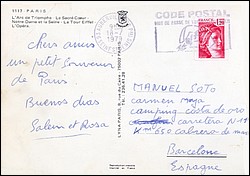 1117 - PARIS
L'Arc de Triomphe - Le Sacré-Cœur
Notre-Dame et la Seine - La Tour Eiffel
L'Opéra
Chers amis
un petit souvenir
de Paris.
Buenos dias
Salem et Rosa
PARIS
CODE POSTAL
MANUEL SOTO
carmen Moya
camping costa de oro
carretera N-11
K 650 cabrera de mar
Barcelona
Espagne